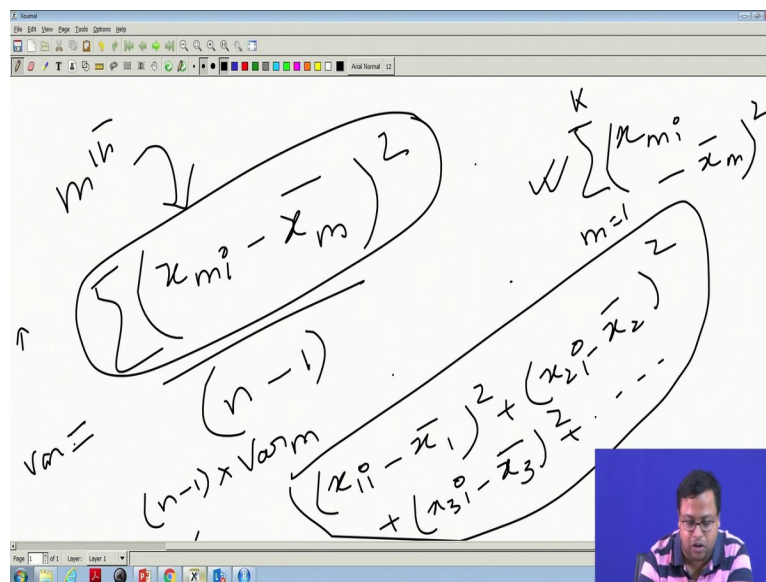 Xournal
File Edit View Page Tools Options Help
Arial Normal 12
mth
∑(x_mi - x̄_m)²
(n-1)
var =
(n-1) × Var_m
K
∑(x_mi - x̄_m)²
m=1
(x_1i - x̄_1)² + (x_2i - x̄_2)²
+ (x_3i - x̄_3)² + ....
Page 1 of 1 Layer: Layer 1